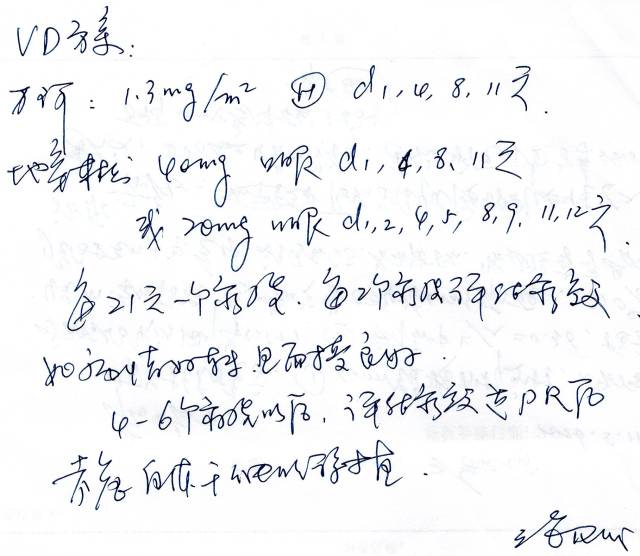 VD方案:
万珂: 1.3mg/m² Ⓗ d1, 4, 8, 11天.
地塞米松 40mg d1, 4, 8, 11天
或 20mg d1, 2, 4, 5, 8, 9, 11, 12天.
每21天一个疗程. 每2个疗程评估疗效.
如 且耐受良好.
4-6个疗程以后, 评估疗效达PR后
考虑自体干细胞移植.